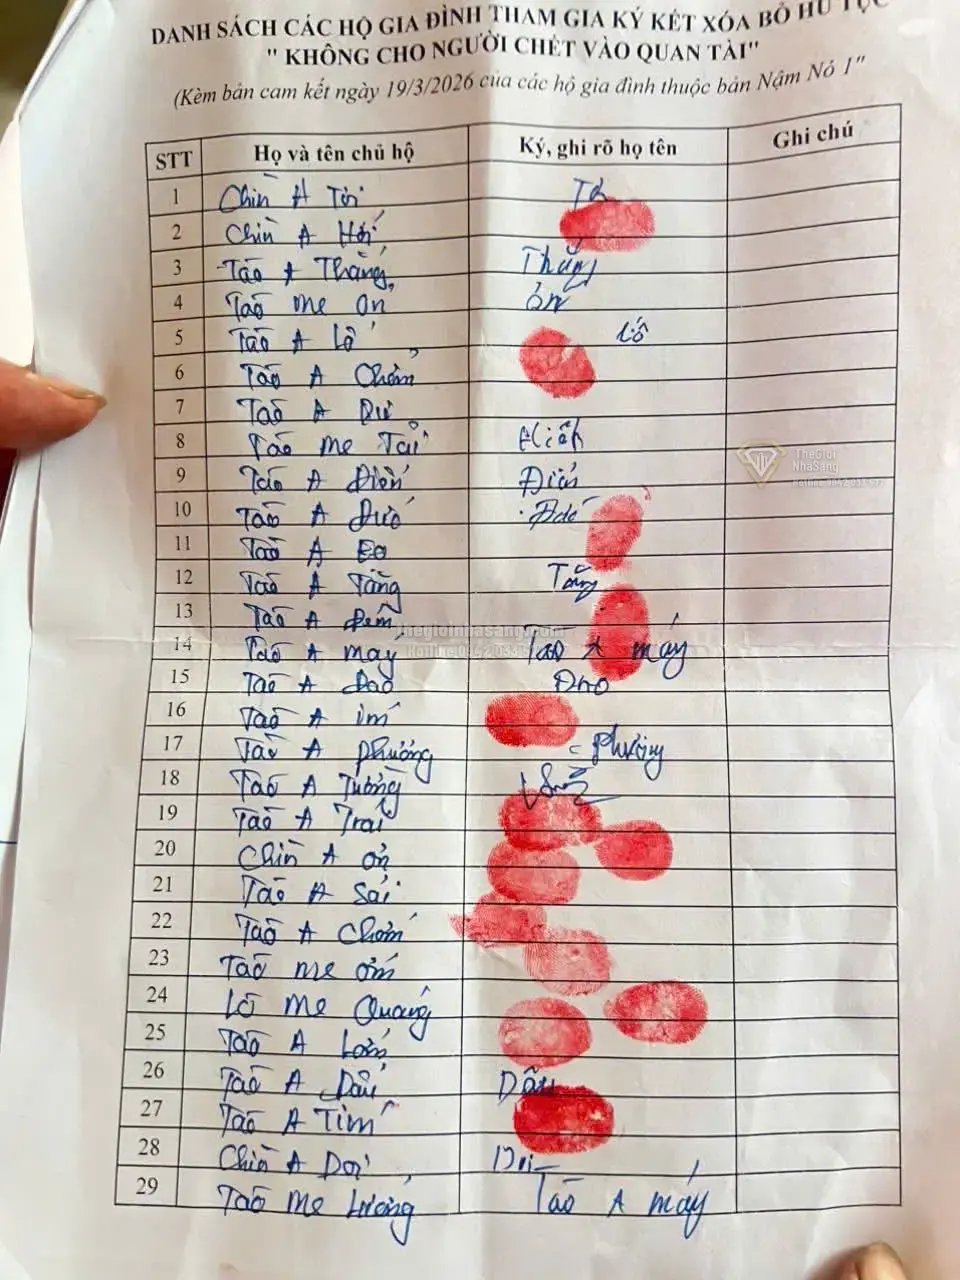 DANH SÁCH CÁC HỘ GIA ĐÌNH THAM GIA KÝ KẾT XÓA BỎ HỦ TỤC
" KHÔNG CHO NGƯỜI CHẾT VÀO QUAN TÀI"
(Kèm bản cam kết ngày 19/3/2026 của các hộ gia đình thuộc bản Nậm Nó 1"
STT Họ và tên chủ hộ Ký, ghi rõ họ tên Ghi chú
1 Chìn A Tới
2 Chìn A Hới
3 Tào A Thắng Thắng
4 Tào Me Ơn ơn
5 Tào A Lố Lố
6 Tào A Chởm
7 Tào A Dư
8 Tào Me Tại
9 Tào A Điển Điển
10 Tào A Đướ
11 Tào A Eo
12 Tào A Tằng Tằng
13 Tào A Đem
14 Tào A máy Tào A máy
15 Tào A Đao Đao
16 Tào A im
17 Tào A phưởng phưởng
18 Tào A Tưởng
19 Tào A Trai
20 Chìn A ơn
21 Tào A Sải
22 Tào A Chơm
23 Tào me ơm
24 Lò Me Quang
25 Tào A Lơm
26 Tào A Dâu Dâu
27 Tào A Tim
28 Chìn A Dơi
29 Tào Me Lương Tào A máy
TheGioi
NhaSang
thegioinhasang.com